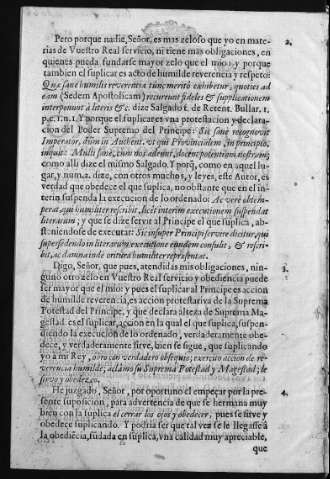 Pero porque nadie, Señor, es mas zeloso que yo en mate-
rias de Vuestro Real servicio, ni tiene mas obligaciones, en
quienes pueda fundarse mayor zelo que el mio, y porque
tambien el suplicar es acto de humilde reverencia y respeto:
Quæ sanè humilis reverentia tunc meritò exhibetur, quoties ad
eam (Sedem Apostolicam) recurrunt fideles & supplicationem
interponunt à literis &c. dize Salgado t. de Retent. Bullar. 1.
p. c. 1. n. 1. Y porque el suplicar es vna protestacion y declara-
cion del Poder Supremo del Principe: Sic sanè recognovit
Imperator, dum in Authent. vt qui Provincialem, in principio,
inquit: Multi sanè, cum nos adeunt, docent potentiam nostram;
como alli dize el mismo Salgado. Y porq, como en aquel lu-
gar, y num. 2. dize, con otros muchos, y leyes, este Autor, es
verdad que obedece el que suplica, no obstante que en el in-
terin suspenda la execucion de lo ordenado: Ac verè obtem-
perat, qui humiliter rescribit, licet interim executionem suspendat
literarum; y que se dize servir al Principe el que suplica, abs-
teniendose de executar: Sic insuper Principi servire dicitur, qui
supersedendo in literarum executione eundem consulit, & rescri-
bit, ac damna inde oritura humiliter repræsentat.
2.
Digo, Señor, que pues, atendidas mis obligaciones, nin-
guno otro zelo en Vuestro Real servicio y obediencia puede
ser mayor que el mio: y pues el suplicar al Principe es accion
de humilde reverencia, es accion protestativa de la Suprema
Potestad del Principe, y que declara alteza de Suprema Ma-
gestad: es el suplicar, accion en la qual el que suplica, suspen-
diendo la execucion de lo ordenado, verdaderamente obe-
dece, y verdaderamente sirve, bien se sigue, que suplicando
yo à mi Rey, obro con verdadero obsequio; exercito accion de re-
verencia humilde; aclamo su Suprema Potestad y Magestad; le
sirvo y obedezco.
3.
He juzgado, Señor, por oportuno el empeçar por la pre-
sente suposicion, para advertencia de que se hermana muy
bien con la suplica el cerrar los ojos y obedecer, pues se sirve y
obedece suplicando. Y podria ser que tal vez se le llegasse à
la obediẽcia, fũdada en suplica, vna calidad muy apreciable,
4.
que